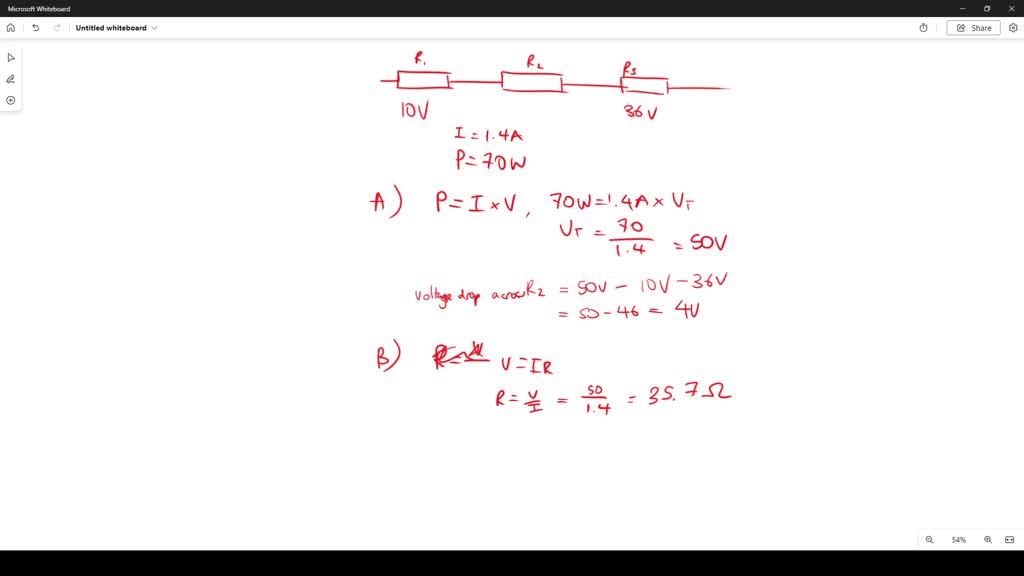 Microsoft Whiteboard
Untitled whiteboard
Share
R1 R2 R3
10V 36V
I = 1.4A
P = 70W
A) P = I × V, 70W = 1.4A × VT
VT = 70/1.4 = 50V
voltage drop across R2 = 50V - 10V - 36V
= 50 - 46 = 4V
B) V = IR
R = V/I = 50/1.4 = 35.7Ω
54%